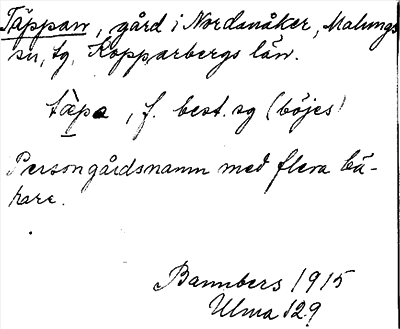 Täppan, gård i Nordanåker, Malungs
sn, tg, Kopparbergs län.
tä̀pa, f. best. sg (böjes)
Persongårdsnamn med flera bä-
rare.
Bannbers 1915
Ulma 129